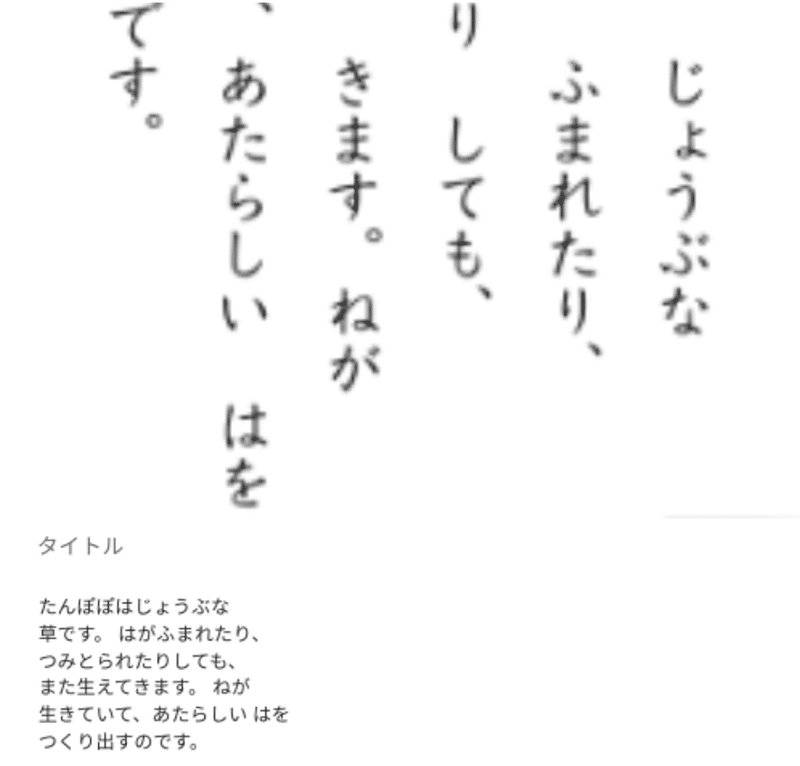 じょうぶな
ふまれたり、
り しても、
きます。 ねが
、あたらしい はを
です。
タイトル
たんぽぽはじょうぶな
草です。 はがふまれたり、
つみとられたりしても、
また生えてきます。 ねが
生きていて、あたらしい はを
つくり出すのです。